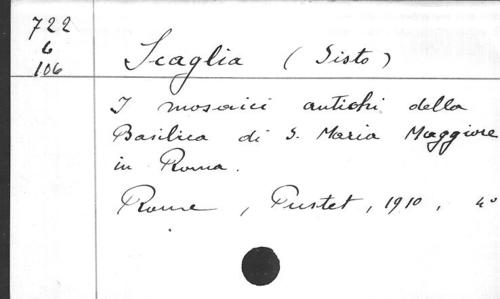 722
6
106
Scaglia (Sisto)
I mosaici antichi della
Basilica di S. Maria Maggiore
in Roma.
Rome, Pustet, 1910, 4°